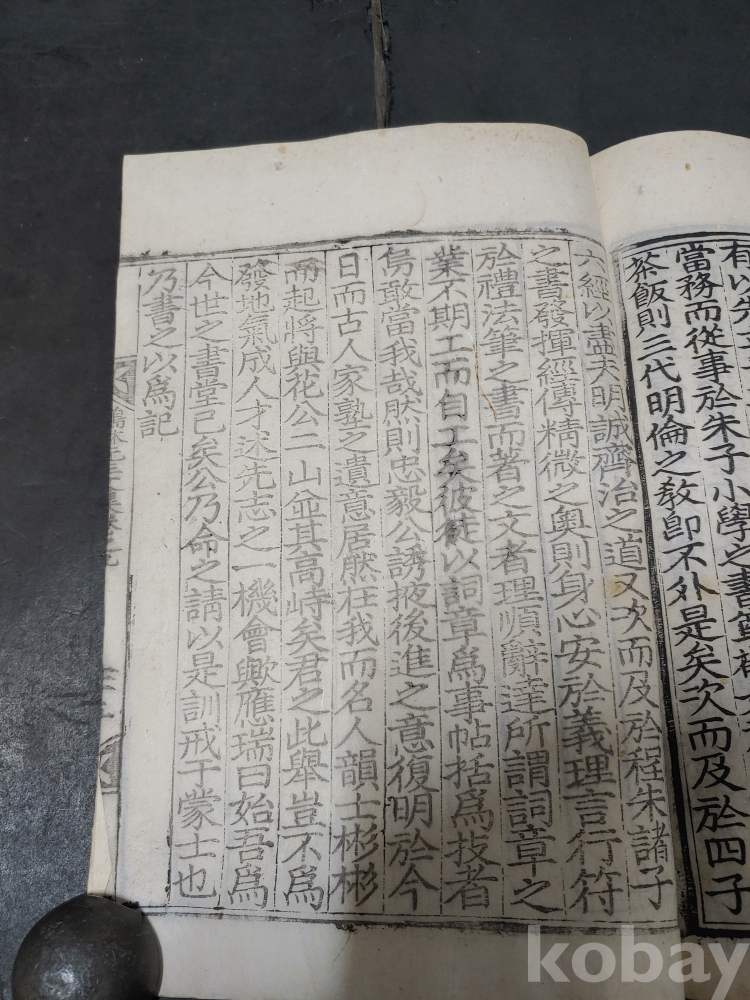 有以先
當務而從事於朱子小學之書
茶飯則三代明倫之敎卽不外是矣次而及於四子
六經以盡夫明誠齊治之道又次而及於程朱諸子
之書發揮經傳精微之奧則身心安於義理言行符
於禮法筆之書而著之文者理順辭達所謂詞章之
業不期工而自工矣彼徒以詞章爲事帖括爲技者
烏敢當我哉然則忠毅公誘掖後進之意復明於今
日而古人家塾之遺意居然在我而名人韻士彬彬
而起將與花公二山並其高峙矣君之此擧豈不爲
發地氣成人才述先志之一機會歟應瑞曰始吾爲
今世之書堂已矣公乃命之請以是訓戒于蒙士也
乃書之以爲記
kobay